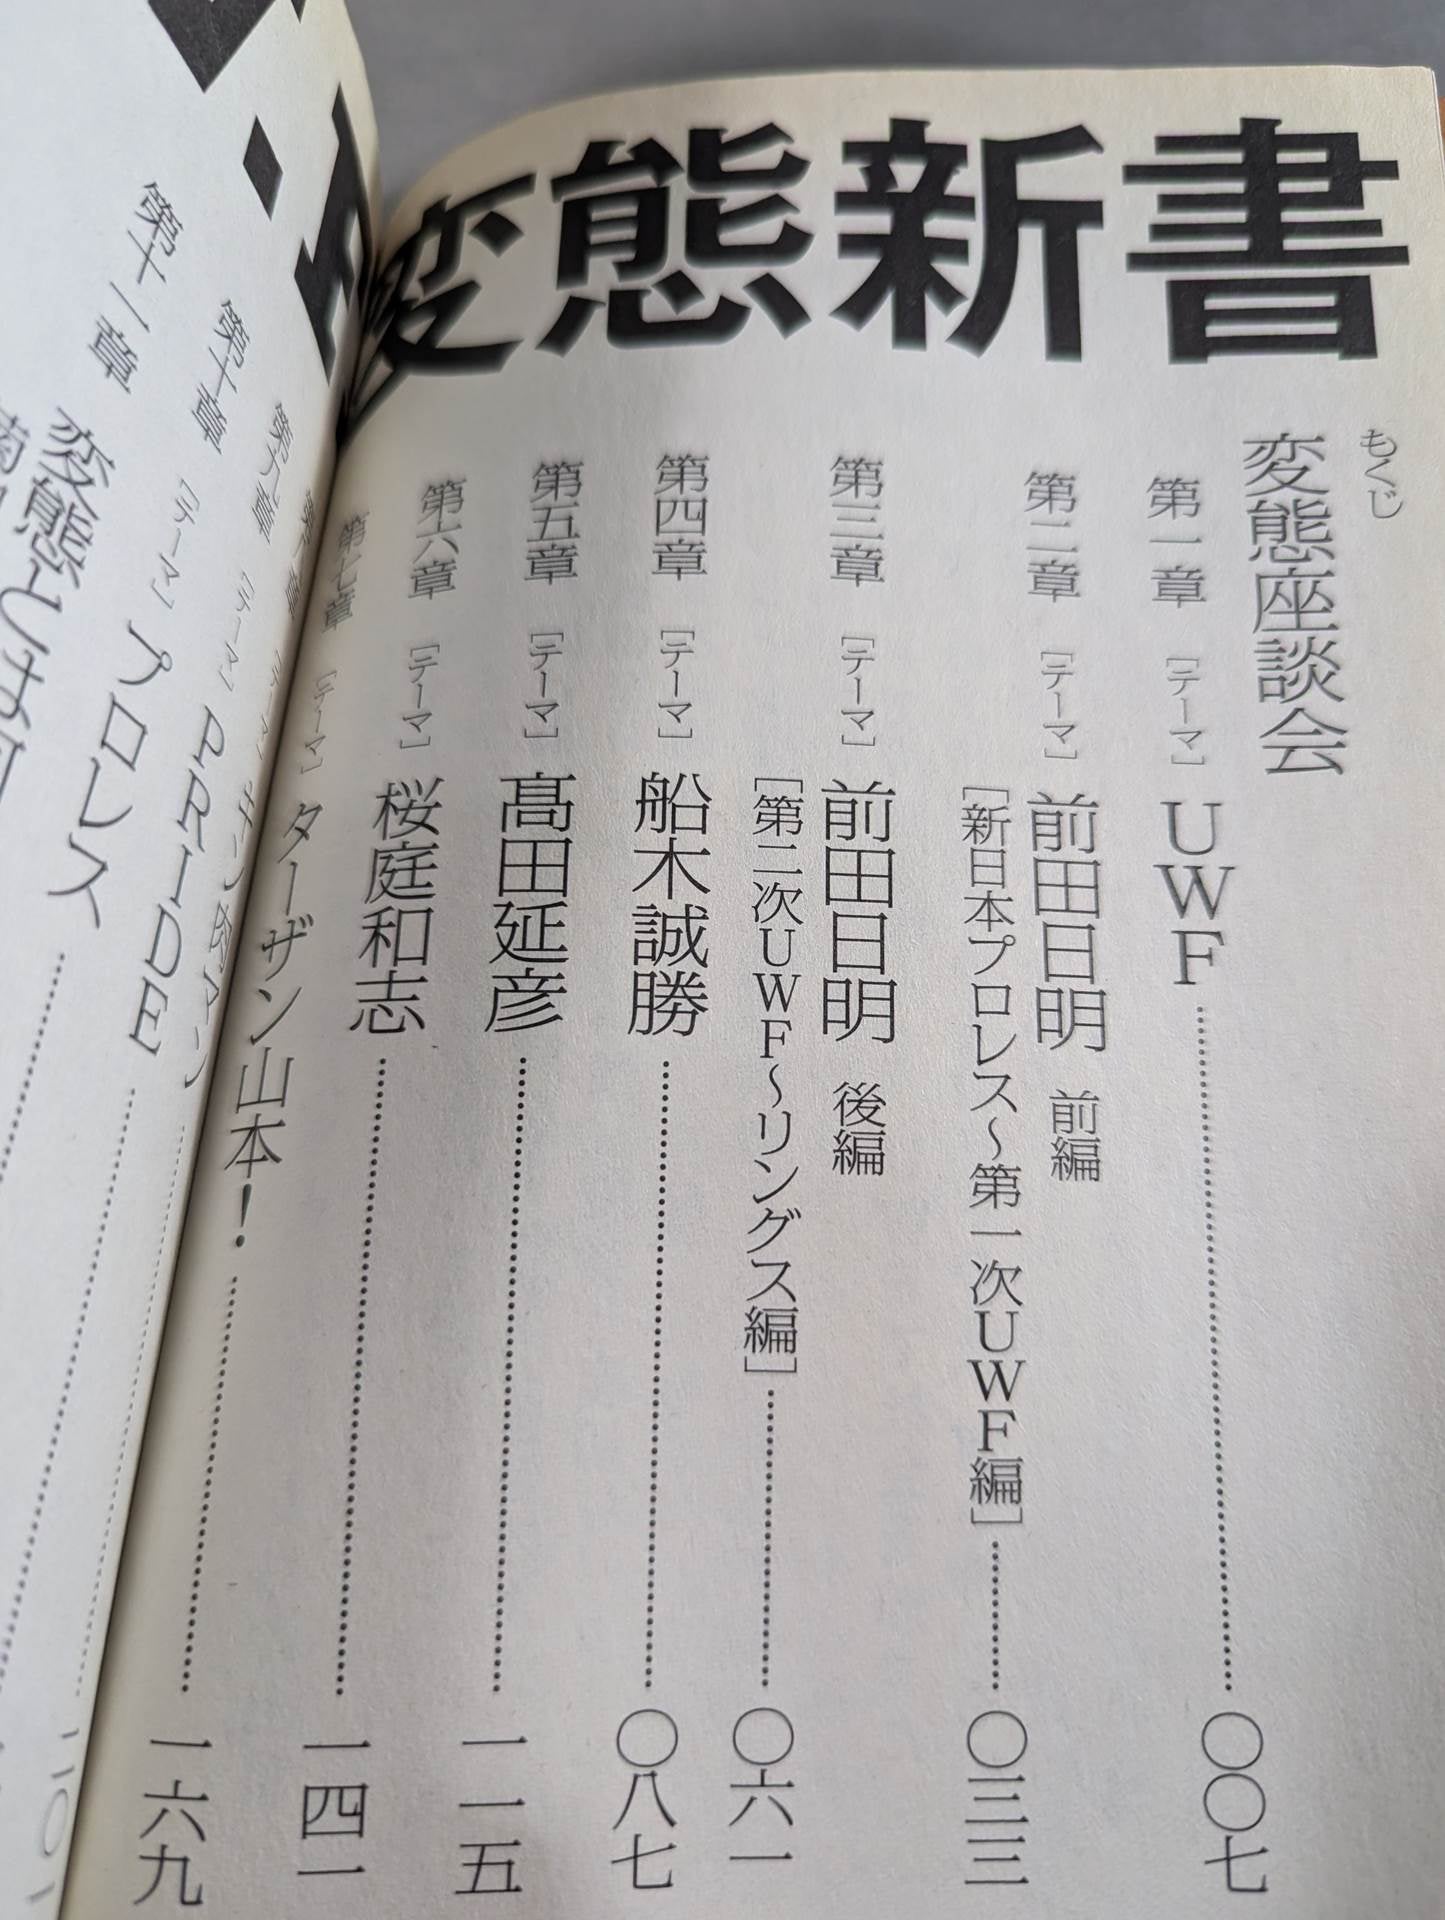 変態新書
もくじ
変態座談会
第一章 ［テーマ］ UWF…………〇〇七
第二章 ［テーマ］ 前田日明 前編
［新日本プロレス～第一次UWF編］…………〇三三
第三章 ［テーマ］ 前田日明 後編
［第二次UWF～リングス編］…………〇六一
第四章 ［テーマ］ 船木誠勝…………〇八七
第五章 ［テーマ］ 髙田延彦…………一一五
第六章 ［テーマ］ 桜庭和志…………一四一
第七章 ［テーマ］ ターザン山本！…………一六九
第九章 ［テーマ］ PRIDE
第十章 ［テーマ］ プロレス
第十一章 変態とは